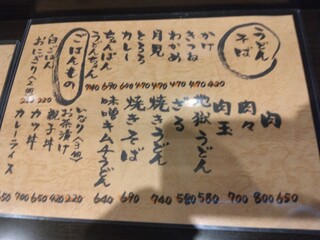 うどん
そば
かけ
きつね
わかめ
月見
とろろ
カレー
ちゃんぽん
うどんちゃん
肉
肉々
肉玉
地獄うどん
ざる
焼きうどん
焼きそば
味噌キムチうどん
650
800
700
580
580
740
690
640
ごはんもの
白ごはん
おにぎり(2個)
220
220
いなり(3個)
お茶漬け
親子丼
カツ丼
カレーライス
220
420
650
700